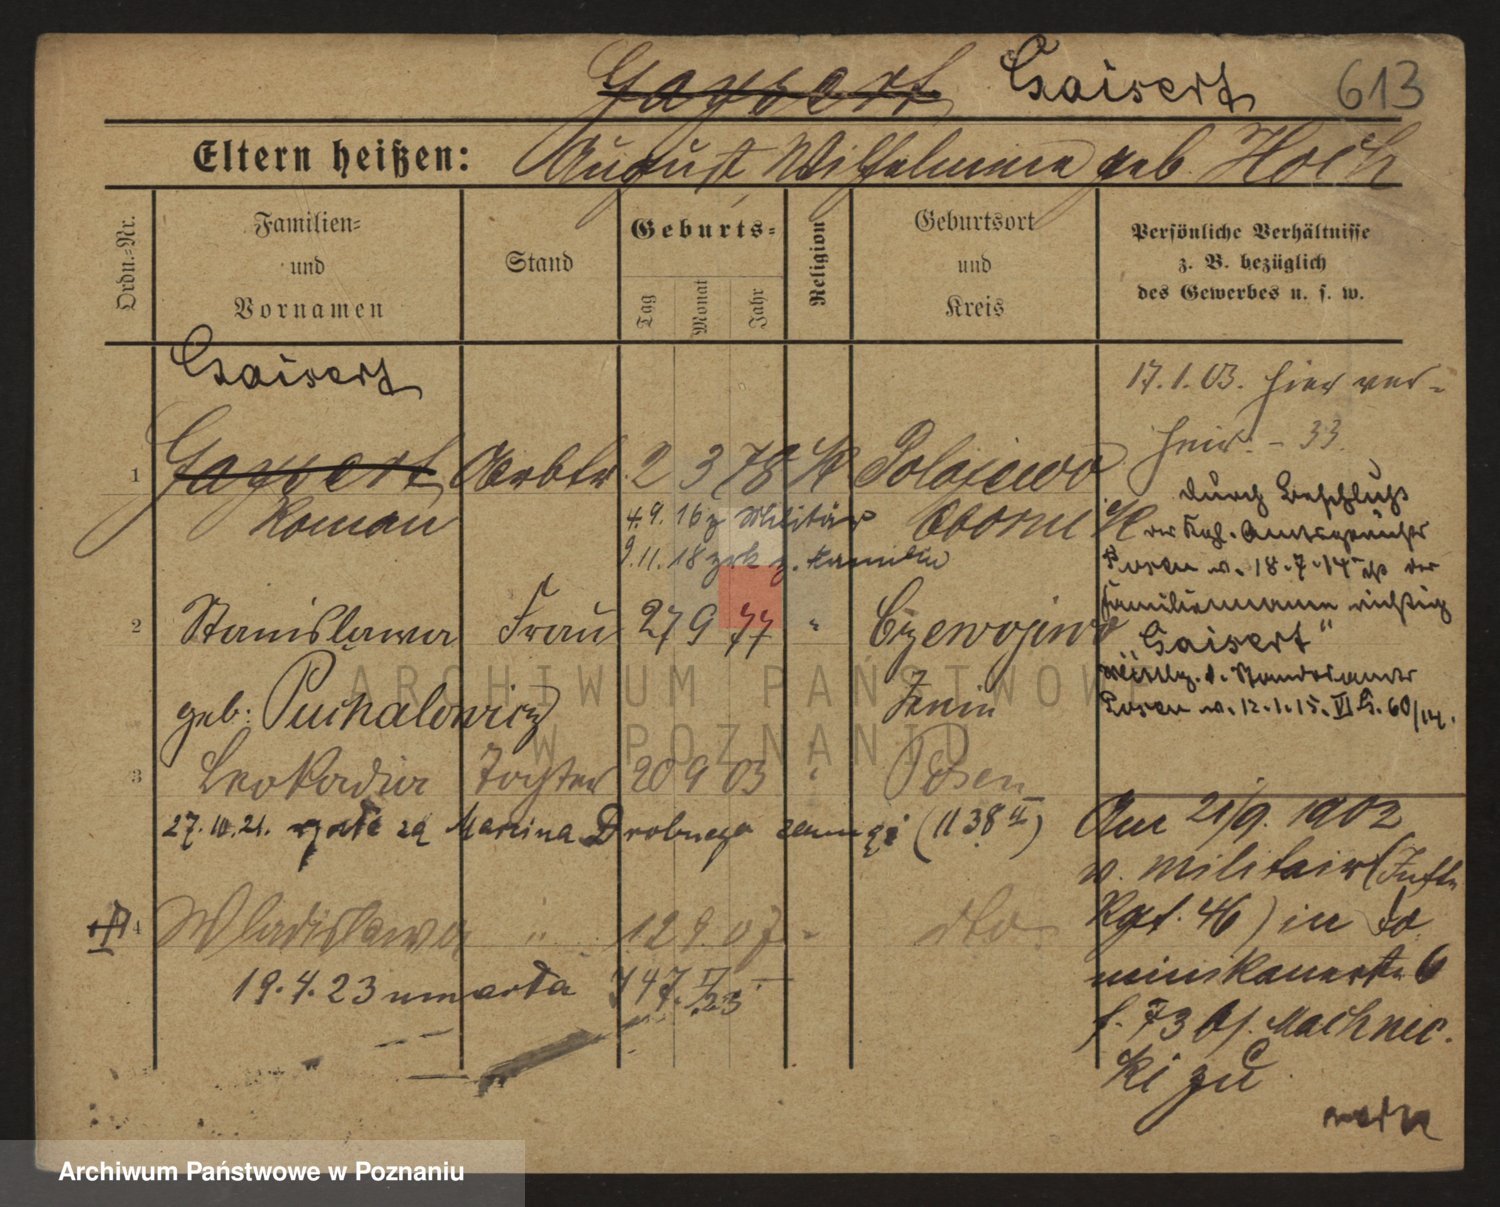 Gaysert Gaisert 613
Eltern heißen: August Wilhelmine geb. Hoch
Ordn.-Nr. Familien- und Vornamen Stand Geburts- Tag Monat Jahr Religion Geburtsort und Kreis Persönliche Verhältnisse z. B. bezüglich des Gewerbes u. s. w.
Gaisert
17.1.03. hier ver-
heir. - 33
1 Gaysert Arbtr. 2 3 78 K Polajewo
Roman Obornik
4.9.16 z Militär
9.11.18 zrk z. Familie
durch Beschluß
der Kgl. Amtsgerichts
Posen v. 18.7.14 ist der
Familienname richtig
"Gaisert"
Mittlg. d. Standesamts
Posen v. 12.1.15. VI G. 60/14.
2 Stanislawa Frau 27 9 77 " Czewojewo
geb: Puchalowicz Znin
3 Leokadia Tochter 20 9 03 " Posen
27.10.21. za Marcina Drobnego (1138 II)
4 Wladislawa " 12 9 07 " dto.
19.4.23 umarła 747 II/23
Am 21/9. 1902
v. Militair (Inftr.
Rgt. 46) in Do
minikanerstr 6
b. Machnic
ki zu
ARCHIWUM PAŃSTWOWE
W POZNANIU
Archiwum Państwowe w Poznaniu